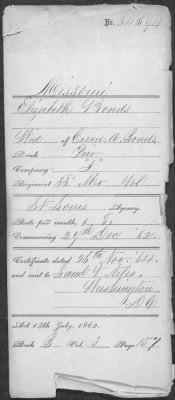 No. 54694
Missouri
Elizabeth Bonds
Wid of A Bonds
Rank Priv
Company "F"
Regiment 33" Mo Vol
St Louis Agency.
Rate per month, $8
Commencing 27th Dec '62
Certificate dated 25th Nov. 64
and sent to
Washington
D.C.
Act 14th July, 1862.
Book B Vol. 3 Page 157